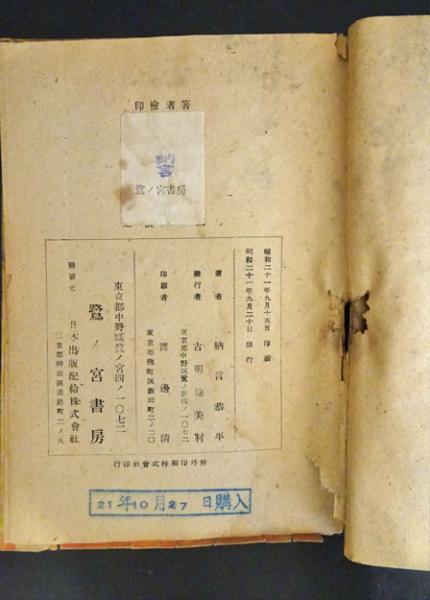 印檢者著
納言
房書宮ノ鷺
昭和二十一年九月十五日 印刷
昭和二十一年九月二十日 發行
著者 納言恭平
發行者
東京都中野區鷺ノ宮四ノ一〇七二
古明地美村
印刷者
渡邊清
東京都中野區鷺ノ宮四ノ一〇七二
鷺ノ宮書房
發賣元
日本出版配給株式會社
行印社會式株刷印外中
21年10月27日購入